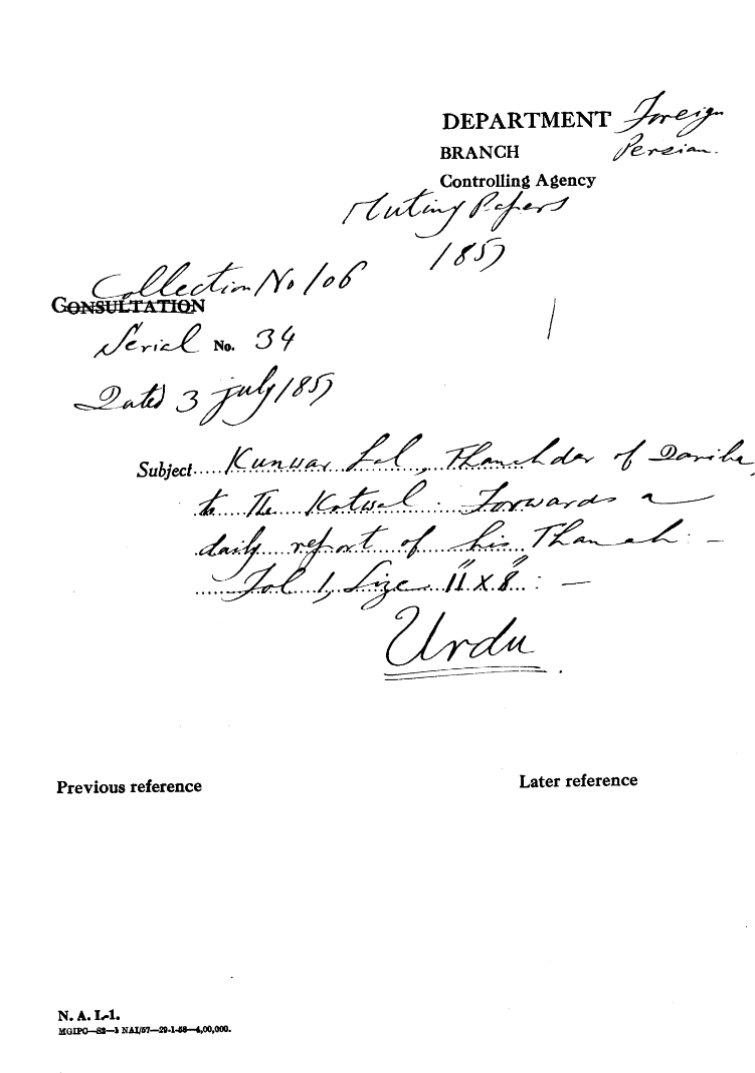 DEPARTMENT Foreign
BRANCH Persian.
Controlling Agency
Mutiny Papers
1857
Collection No 106
CONSULTATION
Serial No. 34
Dated 3 july 1857
Subject Kunwar Lal, Thanehdar of Dariba,
to The Kotwal. Forwards a
daily report of his Thaneh: -
Fol 1, Size 11" x 8": -
Urdu
Previous reference Later reference
N. A. I.-1.
MGIPC—S2—3 NAI/57—29-1-58—4,00,000.